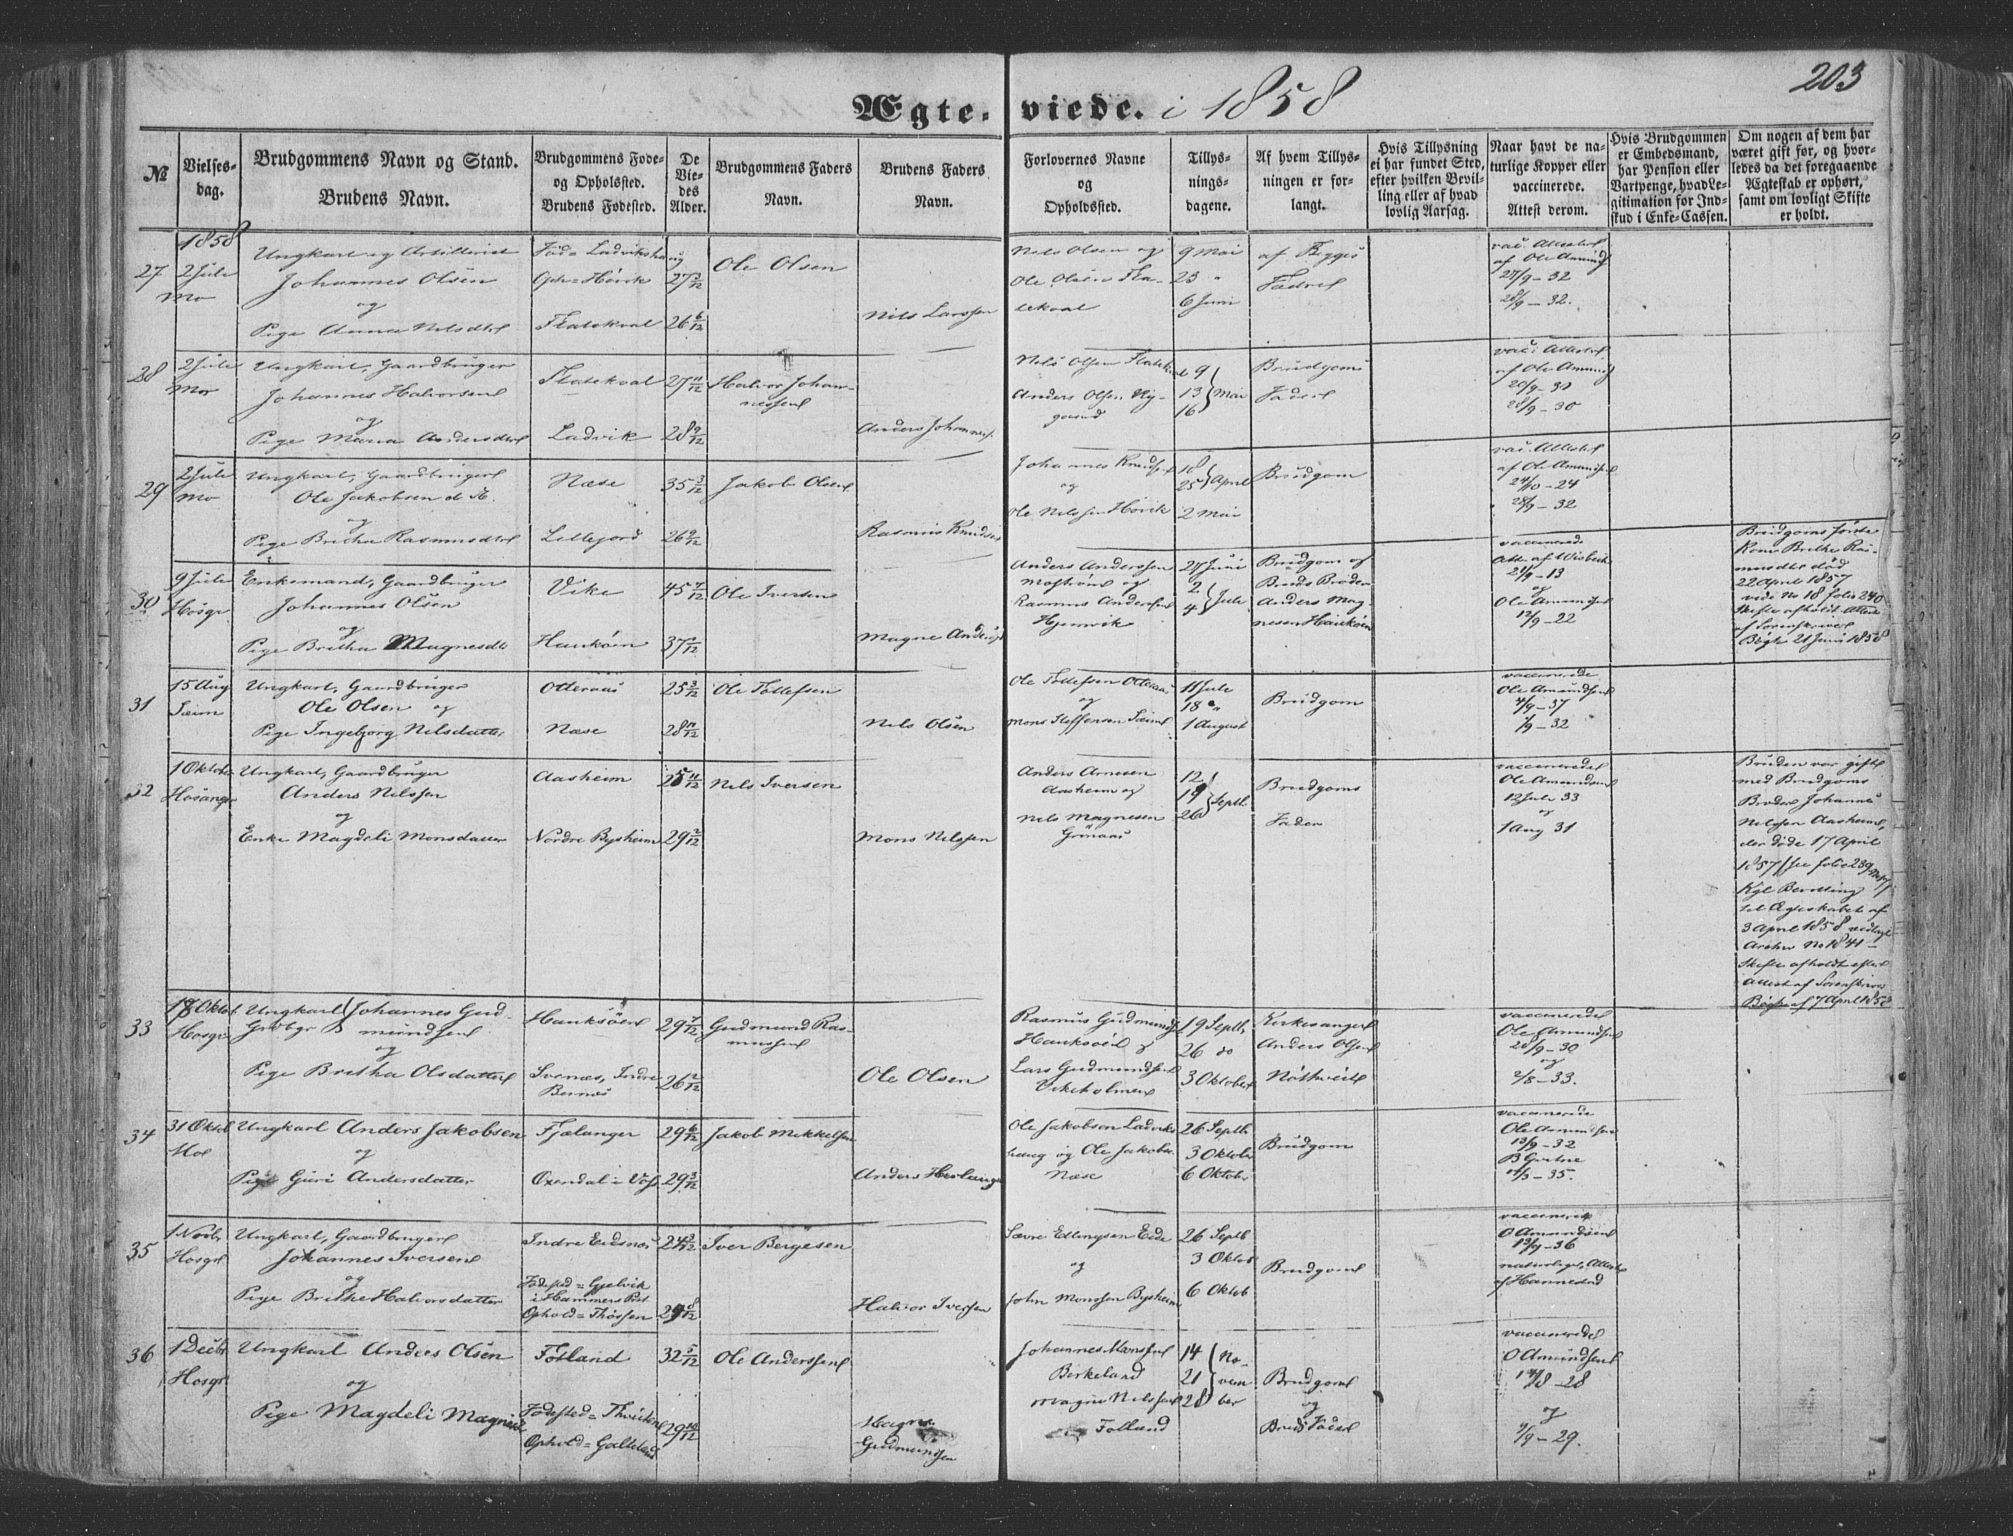 203
Ægte- viede. i 1858
№
Vielses-
dag.
Brudgommens Navn og Stand.
Brudens Navn.
Brudgommens Føde-
og Opholssted.
Brudens Fødested.
De
Vie-
des
Alder.
Brudgommens Faders
Navn.
Brudens Faders
Navn.
Forlovernes Navne
og
Opholdssted.
Tillys-
nings-
dagene.
Af hvem Tillys-
ningen er for-
langt.
Hvis Tillysning
ei har fundet Sted,
efter hvilken Bevil-
ling eller af hvad
lovlig Aarsag.
Naar havt de na-
turlige Kopper eller
vaccinerede.
Attest derom.
Hvis Brudgommen
er Embedsmand,
har Pension eller
Vartpenge, hvad Le-
gitimation for Ind-
skud i Enke-Cassen.
Om nogen af dem har
været gift før, og hvor-
ledes da det foregaaende
Ægtestab er ophørt,
samt om lovligt Skifte
er holdt.
1858
27
2 Jule
Mo
Ungkarl og Artillerist
Johannes Olsen
og
Pige Anna Nilsdtr
Født= Ladvikshaug
Oph= Hørvik
Flatekval
27 3/12
26 6/12
Ole Olsen
Nils Larssen
Nils Olsen og
Ole Olsen Fla-
tekval
9 Mai
23 "
6 Juni
af Begges
Fædre
vac. Attest
af Ole Amunds
27/9 - 32
28/9 - 32.
28
2 Jule
Mo
Ungkarl, Gaardbruger
Johannes Halvorsen
og
Pige Maria Andersdtr
Flatekval
Ladvik
27 11/12
28 9/12
Halvor Johan-
nessen
Anders Johannes.
Nils Olsen Flatekval
Anders Olsen Ny-
gaard
9
13 Mai
16
Brudgoms
Fader
vac. Attest
af Ole Amunds
20/9 - 30
28/9 - 30
29
2 Jule
Mo
Ungkarl, Gaardbruger
Ole Jakobsen d. Æ.
og
Pige Britha Rasmusdtr
Næse
Lillefjord
35 3/12
26 9/12
Jakob Olsen
Rasmus Knudsen
Johannes Knudsen
og
Ole Nilssen Hørvik
18
25 April
2 Mai
Brudgom
vac. Attest
af Ole Amundsen
24/10 - 24
28/9 - 32
30
9 Jule
Hosgr
Enkemand, Gaardbruger
Johannes Olsen
og
Pige Britha Magnesdtr
Vike
Haukøen
45 7/12
37 /12
Ole Iversen
Magne Anders
Anders Anderssen
og
Rasmus Anderssen
Hjemvik
27 Juni
2
4 Jule
Brudgom og
Bruds Broder
Anders Mag
nesen Haukøen
vaccinerede
21/9 - 13
og
Ole Amundsen
12/9 - 22
Brudgoms første
Kone Brithe Ras-
musdtr død
22 April 1857
vide No 18 folio 240
Skifte afholdt Attest
af Sorenskriver
Bøgh 21 Juni 1858
31
15 Aug
Sæim
Ungkarl, Gaardbruger
Ole Olsen og
Pige Ingeborg Nilsdatter
Otteraas
Næse
25 3/12
28 11/12
Ole Tollefsen
Nils Olsen
Ole Tollefsen Otteraas
og
Mons Steffensen Sæim
11 Jule
18 "
1 August
Brudgom
vaccinerede
Ole Amundsen
4/9 - 37
1/9 - 32
32
1 Oktober
Hosanger
Ungkarl, Gaardbruger
Anders Nilssen
og
Enke Magdeli Monsdatter
Aasheim
Nordre Bysheim
25 11/12
29 2/12
Nils Iversen
Mons Nilssen
Anders Arnesen
Aasheim og
Nils Magnesen
12
19 Septb.
26
Brudgoms
Fader
vaccinerede
Ole Amundsen
12 Jule 33
og
1 Aug 31
Bruden var gift
med Brudgoms
Broder Johannes
Nilssen Aasheim,
der døde 17 April
1857 (see folio 239
Kgl Bevilling
til Ægteskabet af
3 April 1858 vidlagt
Archiv No 1841 -
Skifte afholdt efter
Attest af Sorenskriver
Bøgh af 7 April 1858
33
18 Oktob.
Hosgr
Ungkarl Johannes Gud-
Grdbgr mundsen
og
Pige Britha Olsdatter
Hauksøen
Svenæs, Indre
Bernæs
29 7/12
26 2/12
Gudmund Ras-
mussen
Ole Olsen
Rasmus Gudmunds
Hauksøen og
Lars Gudmundsen
Vikeholmen
19 Septb.
26 do
3 Oktober
Kirkesanger
Anders Olsen
Nøthveit
vaccinerede
Ole Amundsen
28/9 - 30
og
2/8 - 33.
34
31 Oktob
Mo
Ungkarl Anders Jakobsen
og
Pige Guri Andersdatter
Fjælanger
Oxendal i Voss
29 6/12
29 3/12
Jakob Mikkelsen
Anders Herlaugs
Ole Jakobsen Ladviks
haug og Ole Jakobs.
Næse
26 Septb
3 Oktober
6 Oktober
Brudgom
vaccinerede
Ole Amundsen
13/9 - 32
35.
35
1 Novb.
Hosgr
Ungkarl, Gaardbruger
Johannes Iversen
og
Pige Brithe Halvorsdatter
Indre Eidsnæs
Fødested= Gjelvik
i Hammers Pst
Ophold= Thossen
24 3/12
29 8/12
Iver Bergesen
Halvor Iversen
Sævre Edlingsen Eide
og
John Monssen Bysheim
26 Septb
3 Oktob
6 Oktob
Brudgom
vaccinerede
O Amundsen
13/9 - 36
naturlige, Attest
af Hannestad
36
1 Decbr
Hosgr
Ungkarl Anders Olsen
og
Pige Magdeli Magnesdtr
Fotland
Fødested= Thveiten
Ophold= Galteland
32 5/12
29 10/12
Ole Anderssen
Magne
Gudmundsen
Johannes Monssen
Birkeland
Magne Nilssen
Fotland
14 No-
21 vem
28 ber
Brudgom
og
Bruds Fader
vaccinerede
O Amundsen
14/8 - 28
og
9/9 - 29.